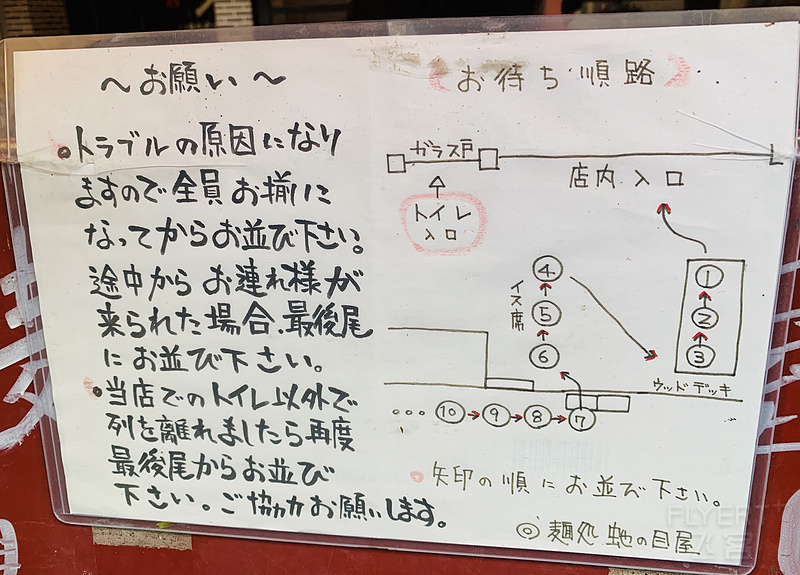 ～お願い～
・トラブルの原因になり
ますので全員お揃いに
なってからお並び下さい。
途中からお連れ様が
来られた場合、最後尾
にお並び下さい。
・当店でのトイレ以外で
列を離れましたら再度
最後尾からお並び
下さい。ご協力お願いします。
（お待ち順路）
ガラス戸
店内入口
トイレ
入口
イス席
④
⑤
⑥
①
②
③
ウッドデッキ
・・・⑩→⑨→⑧→⑦
○矢印の順にお並び下さい。
◎麺処 蛇の目屋
FLYERT
飞客